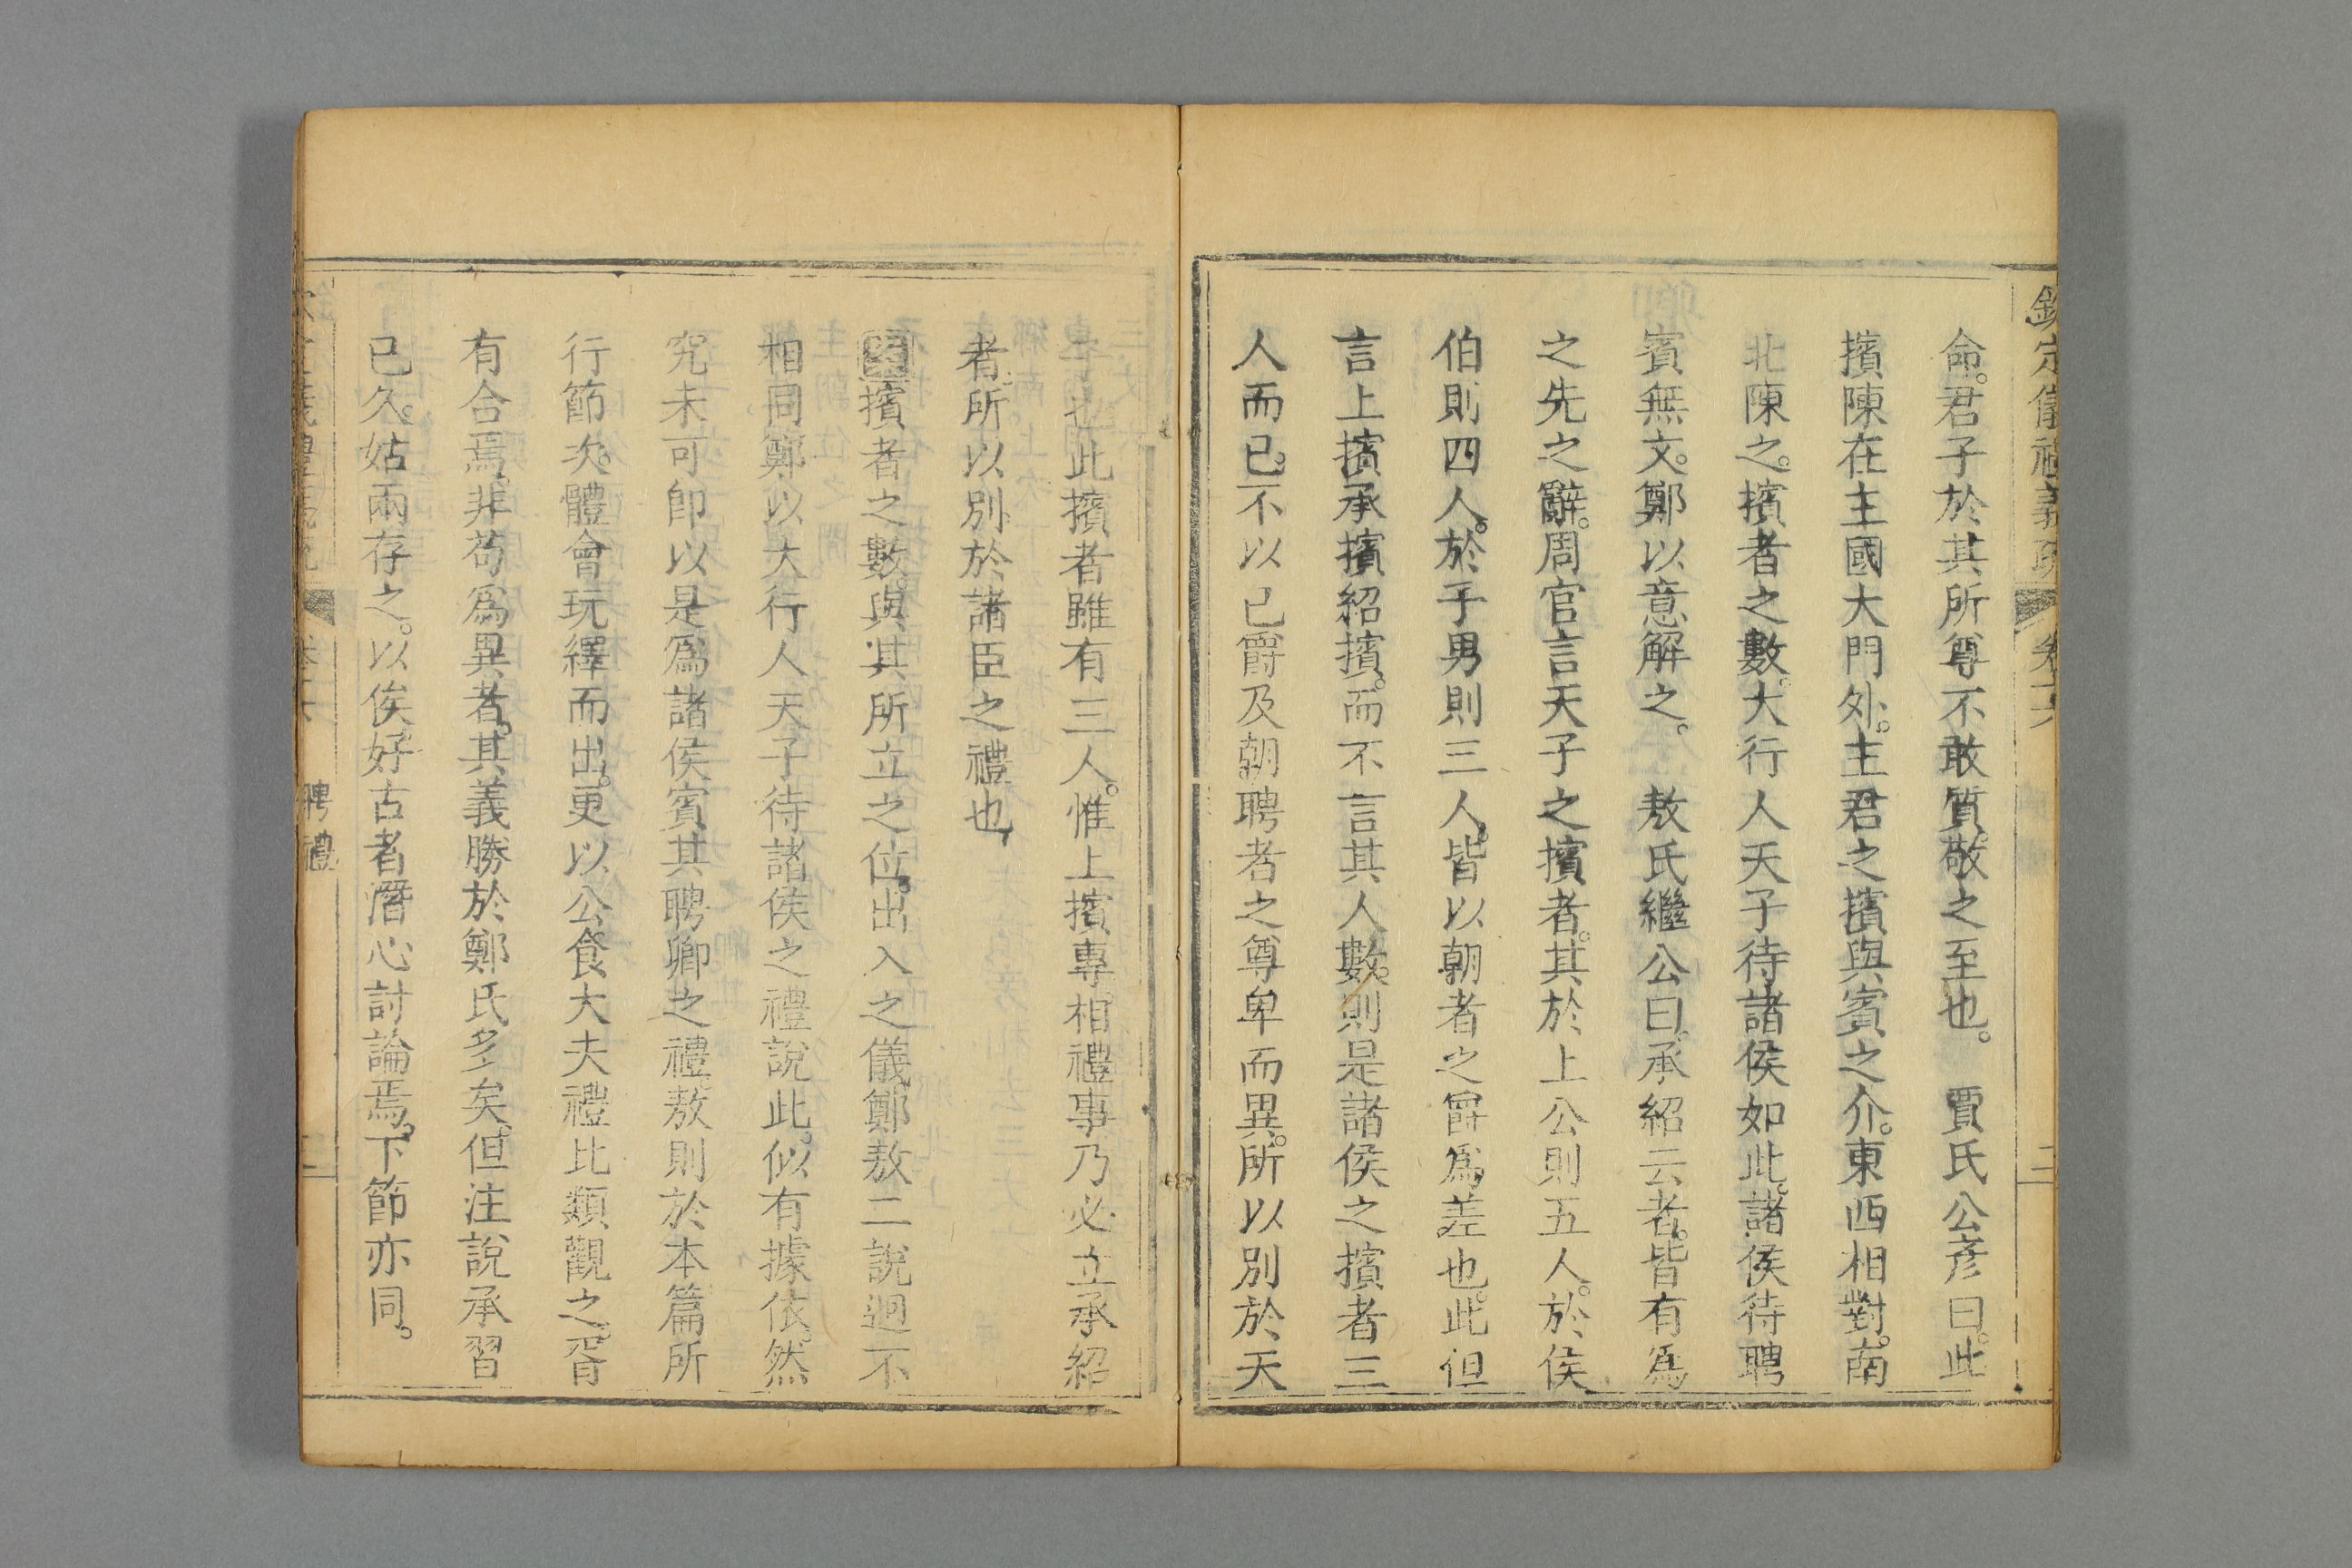 欽定儀禮義疏 卷十六 二
命。君子於其所尊不敢質。敬之至也。 賈氏公彥曰。此
擯陳在主國大門外。主君之擯與賓之介。東西相對。南
北陳之。擯者之數。大行人天子待諸侯如此。諸侯待聘
賓無文。鄭以意解之。 敖氏繼公曰。承紹云者。皆有爲
之先之辭。周官言天子之擯者。其於上公則五人。於侯
伯則四人。於子男則三人。皆以朝者之爵爲差也。此但
言上擯承擯紹擯。而不言其人數。則是諸侯之擯者三
人而已。不以已爵及朝聘者之尊卑而異。所以別於天
也此擯者雖有三人。惟上擯專相禮事乃必立承紹
者。所以別於諸臣之禮也
擯者之數。與其所立之位。出入之儀鄭敖二說迥不
相同鄭以大行人天子待諸侯之禮說此。似有據依。然
究未可卽以是爲諸侯賓其聘卿之禮。敖則於本篇所
行節次。體會玩繹而出。更以公食大夫禮比類觀之。胥
有合焉。非苟爲異者。其義勝於鄭氏多矣。但注說承習
已久。姑兩存之。以俟好古者潛心討論焉。下節亦同。
聘禮 二